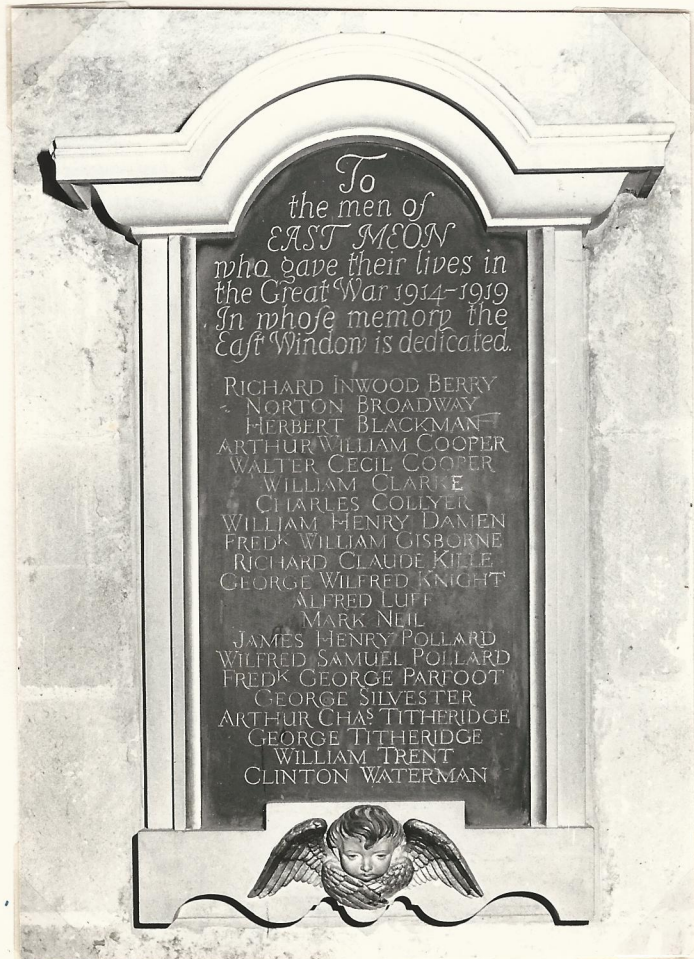 To
the men of
EAST MEON
who gave their lives in
the Great War 1914–1919
In whoſe memory the
Eaſt Window is dedicated.
RICHARD INWOOD BERRY
NORTON BROADWAY
HERBERT BLACKMAN
ARTHUR WILLIAM COOPER
WALTER CECIL COOPER
WILLIAM CLARKE
CHARLES COLLYER
WILLIAM HENRY DAMEN
FREDK WILLIAM GISBORNE
RICHARD CLAUDE KILLE
GEORGE WILFRED KNIGHT
ALFRED LUFF
MARK NEIL
JAMES HENRY POLLARD
WILFRED SAMUEL POLLARD
FREDK GEORGE PARFOOT
GEORGE SILVESTER
ARTHUR CHAS. TITHERIDGE
GEORGE TITHERIDGE
WILLIAM TRENT
CLINTON WATERMAN